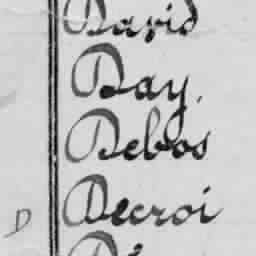 David
Day.
Debos
D
Decroi
Dé